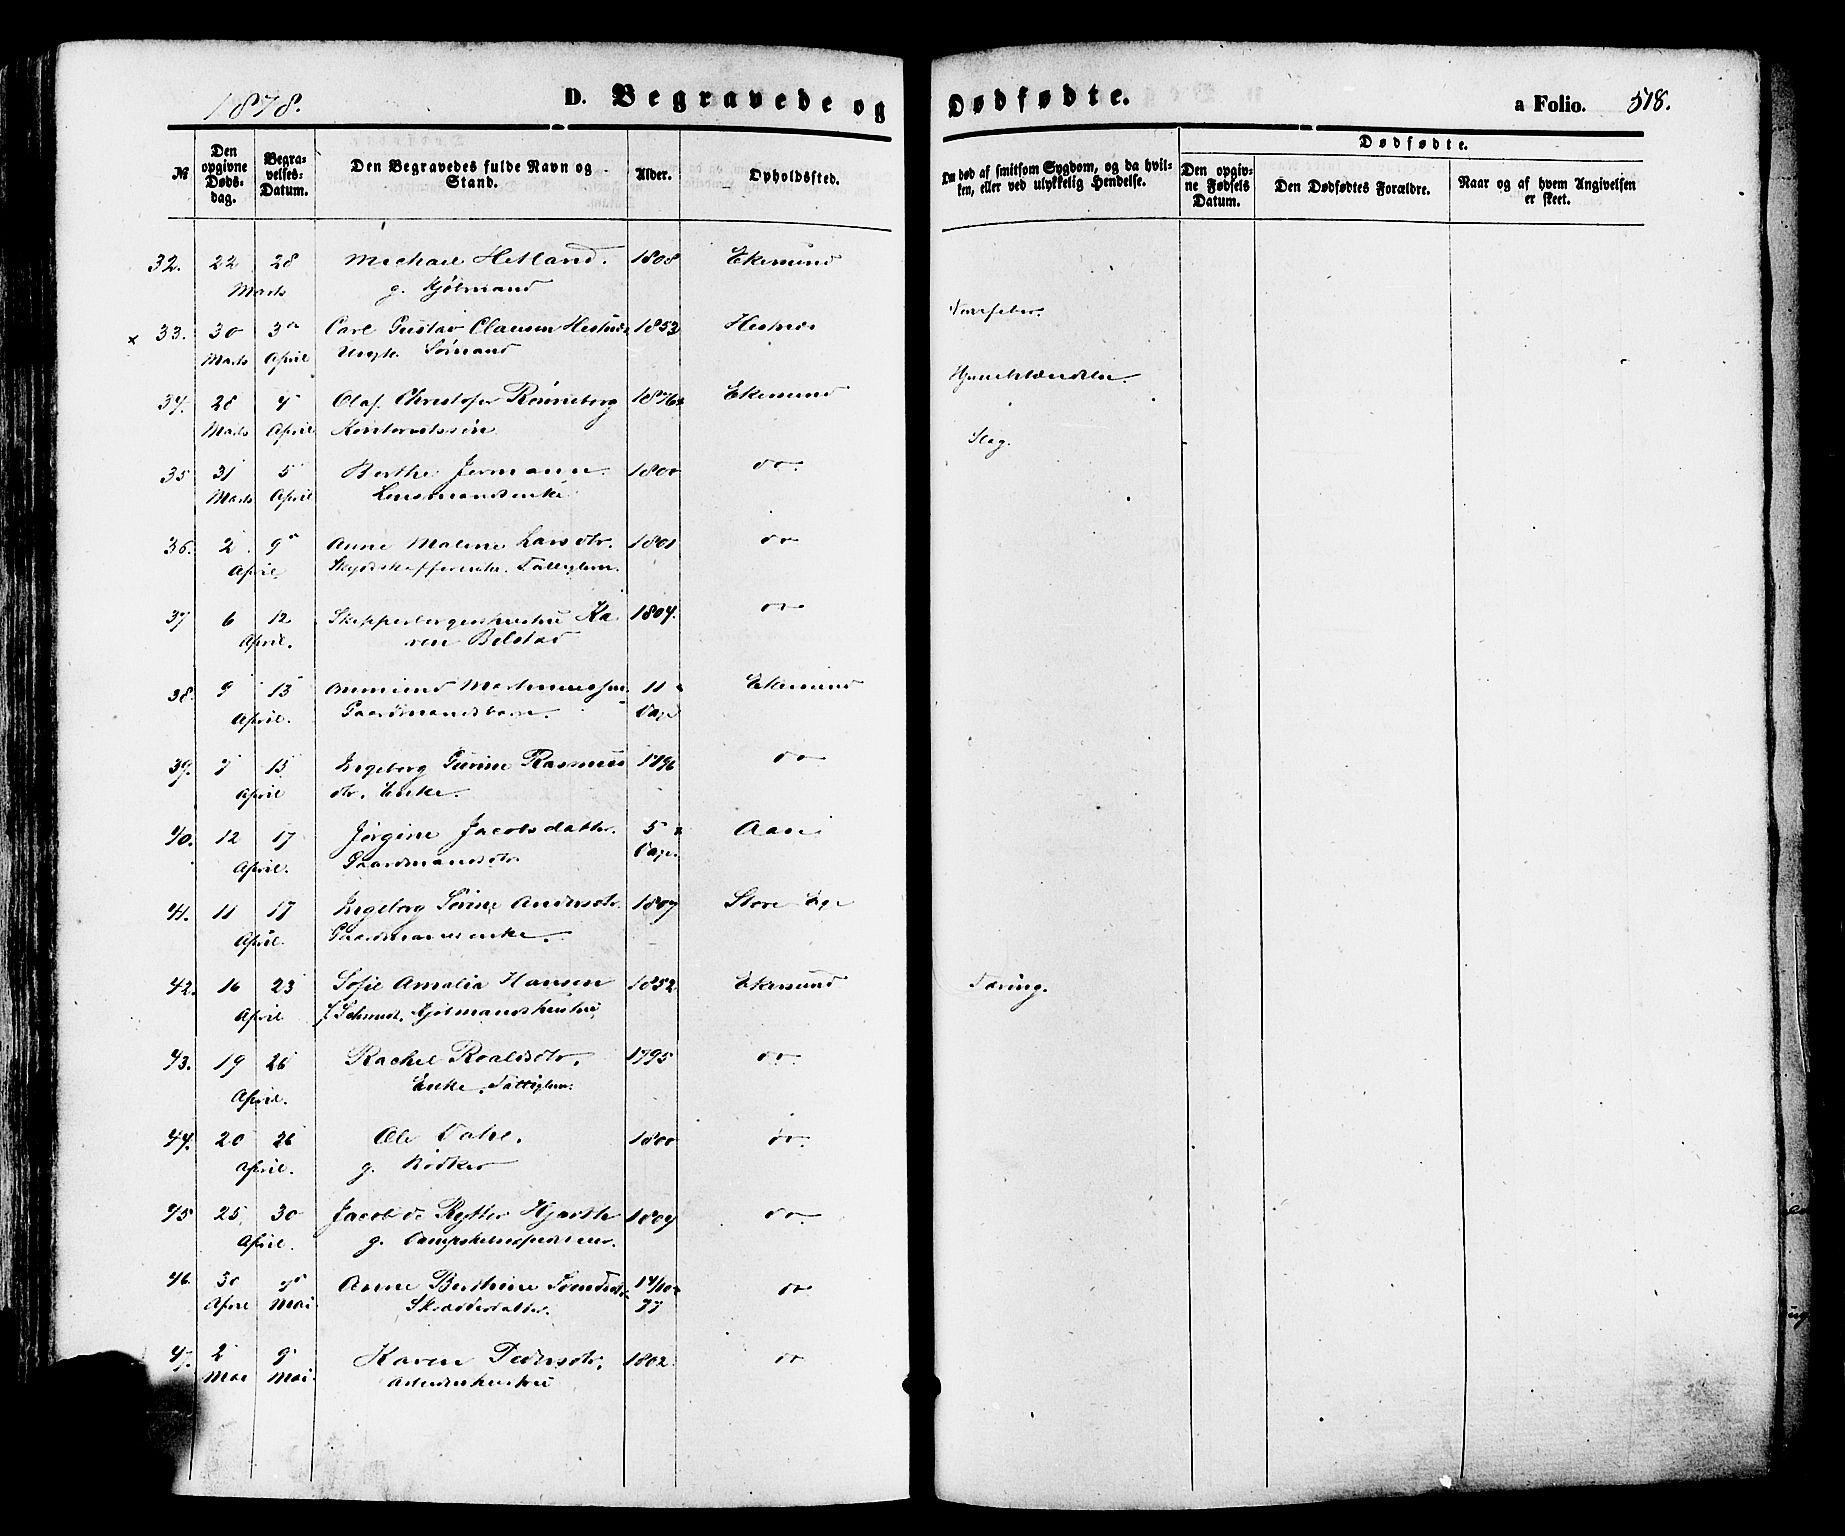 1878.
D. Begravede og Dødfødte.
a Folio. 518.
№
Den opgivne Døds-dag.
Begra-velses-Datum.
Den Begravedes fulde Navn og Stand.
Alder.
Opholdssted.
Om død af smitsom Sygdom, og da hvil-ken, eller ved ulykkelig Hendelse.
Dødfødte.
Den opgiv-ne Fødsels Datum.
Den Dødfødtes Forældre.
Naar og af hvem Angivelsen er skeet.
32. 22 28 Michael Hetland. 1808 Ekersund
Marts g. Kjøbmand
x 33. 30 3 Carl Gustav Clausen Hestnes 1853 Hestnes
Marts April Ungk. Sømand
34. 28 4 Olaf Christofer Rønneberg 1876 Ekersund
Marts April
Slag.
35 31 5 Berthe Jermann. 1800 do.
Marts April Lensmandsenke
36. 2 9 Anne Malene Larsdtr. 1801 do
April Skydsskafferenke. Fattiglem.
37 6 12 Skipperborgerhustru Ka- 1804. do
April. ren Bilstad
38. 9 13 11 Ekersund
April. Gaardmandsbarn. Dage
39. 7 15 Ingeborg Gurine Rasmus 1796 do
April dtr. Enke.
40. 12 17 Jørgine Jacobsdatter. 5 Aase
April. Gaardmandsdtr. Dage.
41. 11 17 Ingeborg Sørine Andersdtr. 1807 Store Ege
April. Gaardmandsenke.
42. 16 23 Sofie Amalia Hansen 1852 Ekersund Tæring.
April f. Schmidt. Kjøbmandshustru
43. 19 26 Rachel Roaldsdtr. 1795 do.
April. Enke. Fattiglem.
44. 20 26 Ole Dahl. 1800 do.
April. g. Bødker
45 25 30 Jacob de Rytter Kjørth 1807 do.
April. g. Dampskibsexpediteur.
46. 30 7 Anne Berthine 14/10 do.
April Mai Skrædderdatter. 77
47. 2 9 Karen Pedersdtr. 1802. do
Mai Mai.